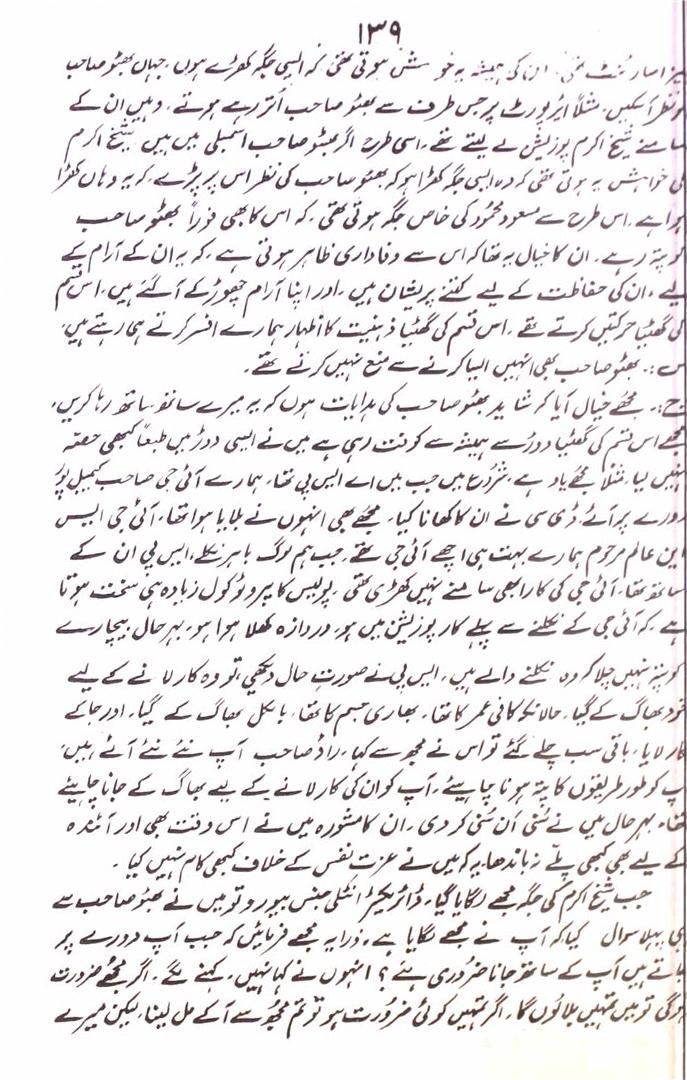 ۱۳۹
ان کی ہمیشہ یہ خواہش ہوتی تھی کہ ایسی جگہ کھڑے ہوں، جہاں بھٹو صاحب
کو نظر آ سکیں۔ مثلاً ایئرپورٹ پر جس طرف سے بھٹو صاحب اُتر رہے ہوتے، وہیں ان کے
سامنے شیخ اکرم پوزیشن لے لیتے تھے۔ اسی طرح اگر بھٹو صاحب اسمبلی میں ہیں شیخ اکرم
کی خواہش یہ ہوتی تھی کہ وہ ایسی جگہ کھڑا ہو کہ بھٹو صاحب کی نظر اس پر پڑے، کہ یہ وہاں کھڑا
ہوا ہے۔ اس طرح سے مسعود محمود کی خاص جگہ ہوتی تھی، کہ اس کا بھی فوراً بھٹو صاحب
کو پتہ رہے۔ ان کا خیال یہ تھا کہ اس سے وفاداری ظاہر ہوتی ہے، کہ یہ ان کے آرام کے
لیے، ان کی حفاظت کے لیے کتنے پریشان ہیں، اور اپنا آرام چھوڑ کے آ گئے ہیں، اس قسم
کی گھٹیا حرکتیں کرتے تھے۔ اس قسم کی گھٹیا ذہنیت کا اظہار ہمارے افسر کرتے ہی رہتے ہیں،
س :۔ بھٹو صاحب بھی انہیں ایسا کرنے سے منع نہیں کرتے تھے۔
ج :۔ مجھے خیال آیا کہ شاید بھٹو صاحب کی ہدایات ہوں کہ یہ میرے ساتھ ساتھ رہا کریں،
مجھے اس قسم کی گھٹیا دوڑ سے ہمیشہ سے کوفت رہی ہے میں نے ایسی دوڑ میں طبعاً کبھی حصہ
نہیں لیا، مثلاً مجھے یاد ہے، شروع میں جب میں اے ایس پی تھا، ہمارے آئی جی صاحب کیمبل پور
دورے پر آئے، ڈی سی نے ان کا کھانا کیا، مجھے بھی انہوں نے بلایا ہوا تھا، آئی جی ایس
این عالم مرحوم ہمارے بہت ہی اچھے آئی جی تھے، جب ہم لوگ باہر نکلے، ایس پی ان کے
ساتھ تھا، آئی جی کی کار ابھی سامنے نہیں کھڑی تھی، پولیس کا پروٹوکول زیادہ ہی سخت ہوتا
ہے، کہ آئی جی کے نکلنے سے پہلے کار پوزیشن میں ہو، دروازہ کھلا ہوا ہو، بہرحال بیچارے
کو پتہ نہیں چلا کہ وہ نکلنے والے ہیں، ایس پی نے صورتِ حال دیکھی، تو وہ کار لانے کے لیے
خود بھاگ کے گیا، حالانکہ کافی عمر کا تھا، بھاری جسم کا تھا، بالکل بھاگ کے گیا، اور جا کے
کار لایا، باقی سب چلے گئے تو اس نے مجھ سے کہا، راؤ صاحب آپ نئے نئے آئے ہیں،
آپ کو طور طریقوں کا پتہ ہونا چاہیئے، آپ کو ان کی کار لانے کے لیے بھاگ کے جانا چاہیئے
تھا، بہرحال میں نے سُنی اَن سُنی کر دی، ان کا مشورہ میں نے اس وقت بھی اور آئندہ
کے لیے بھی کبھی پلے نہ باندھا، کہ میں نے عزت نفس کے خلاف کبھی کام نہیں کیا۔
جب شیخ اکرم کی جگہ مجھے لگایا گیا، ڈائریکٹر انٹیلی جنس بیورو تو میں نے بھٹو صاحب سے
ہی پہلا سوال کیا کہ آپ نے مجھے لگایا ہے، ذرا یہ مجھے فرمائیں کہ جب آپ دورے پر
جاتے ہیں آپ کے ساتھ جانا ضروری ہے؟ انہوں نے کہا نہیں، کہنے لگے، اگر مجھے ضرورت
ہو گی تو میں تمہیں بلاؤں گا، اگر تمہیں کوئی ضرورت ہو تو تم مجھ سے آ کے مل لینا، لیکن میرے